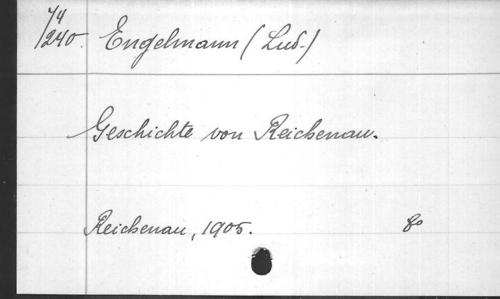 74
1240. Engelmann (Lud.)
Geschichte von Reichenau.
Reichenau, 1905. 8o